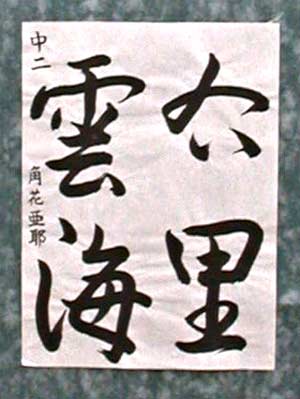 里
雲海
中二
角花亜耶